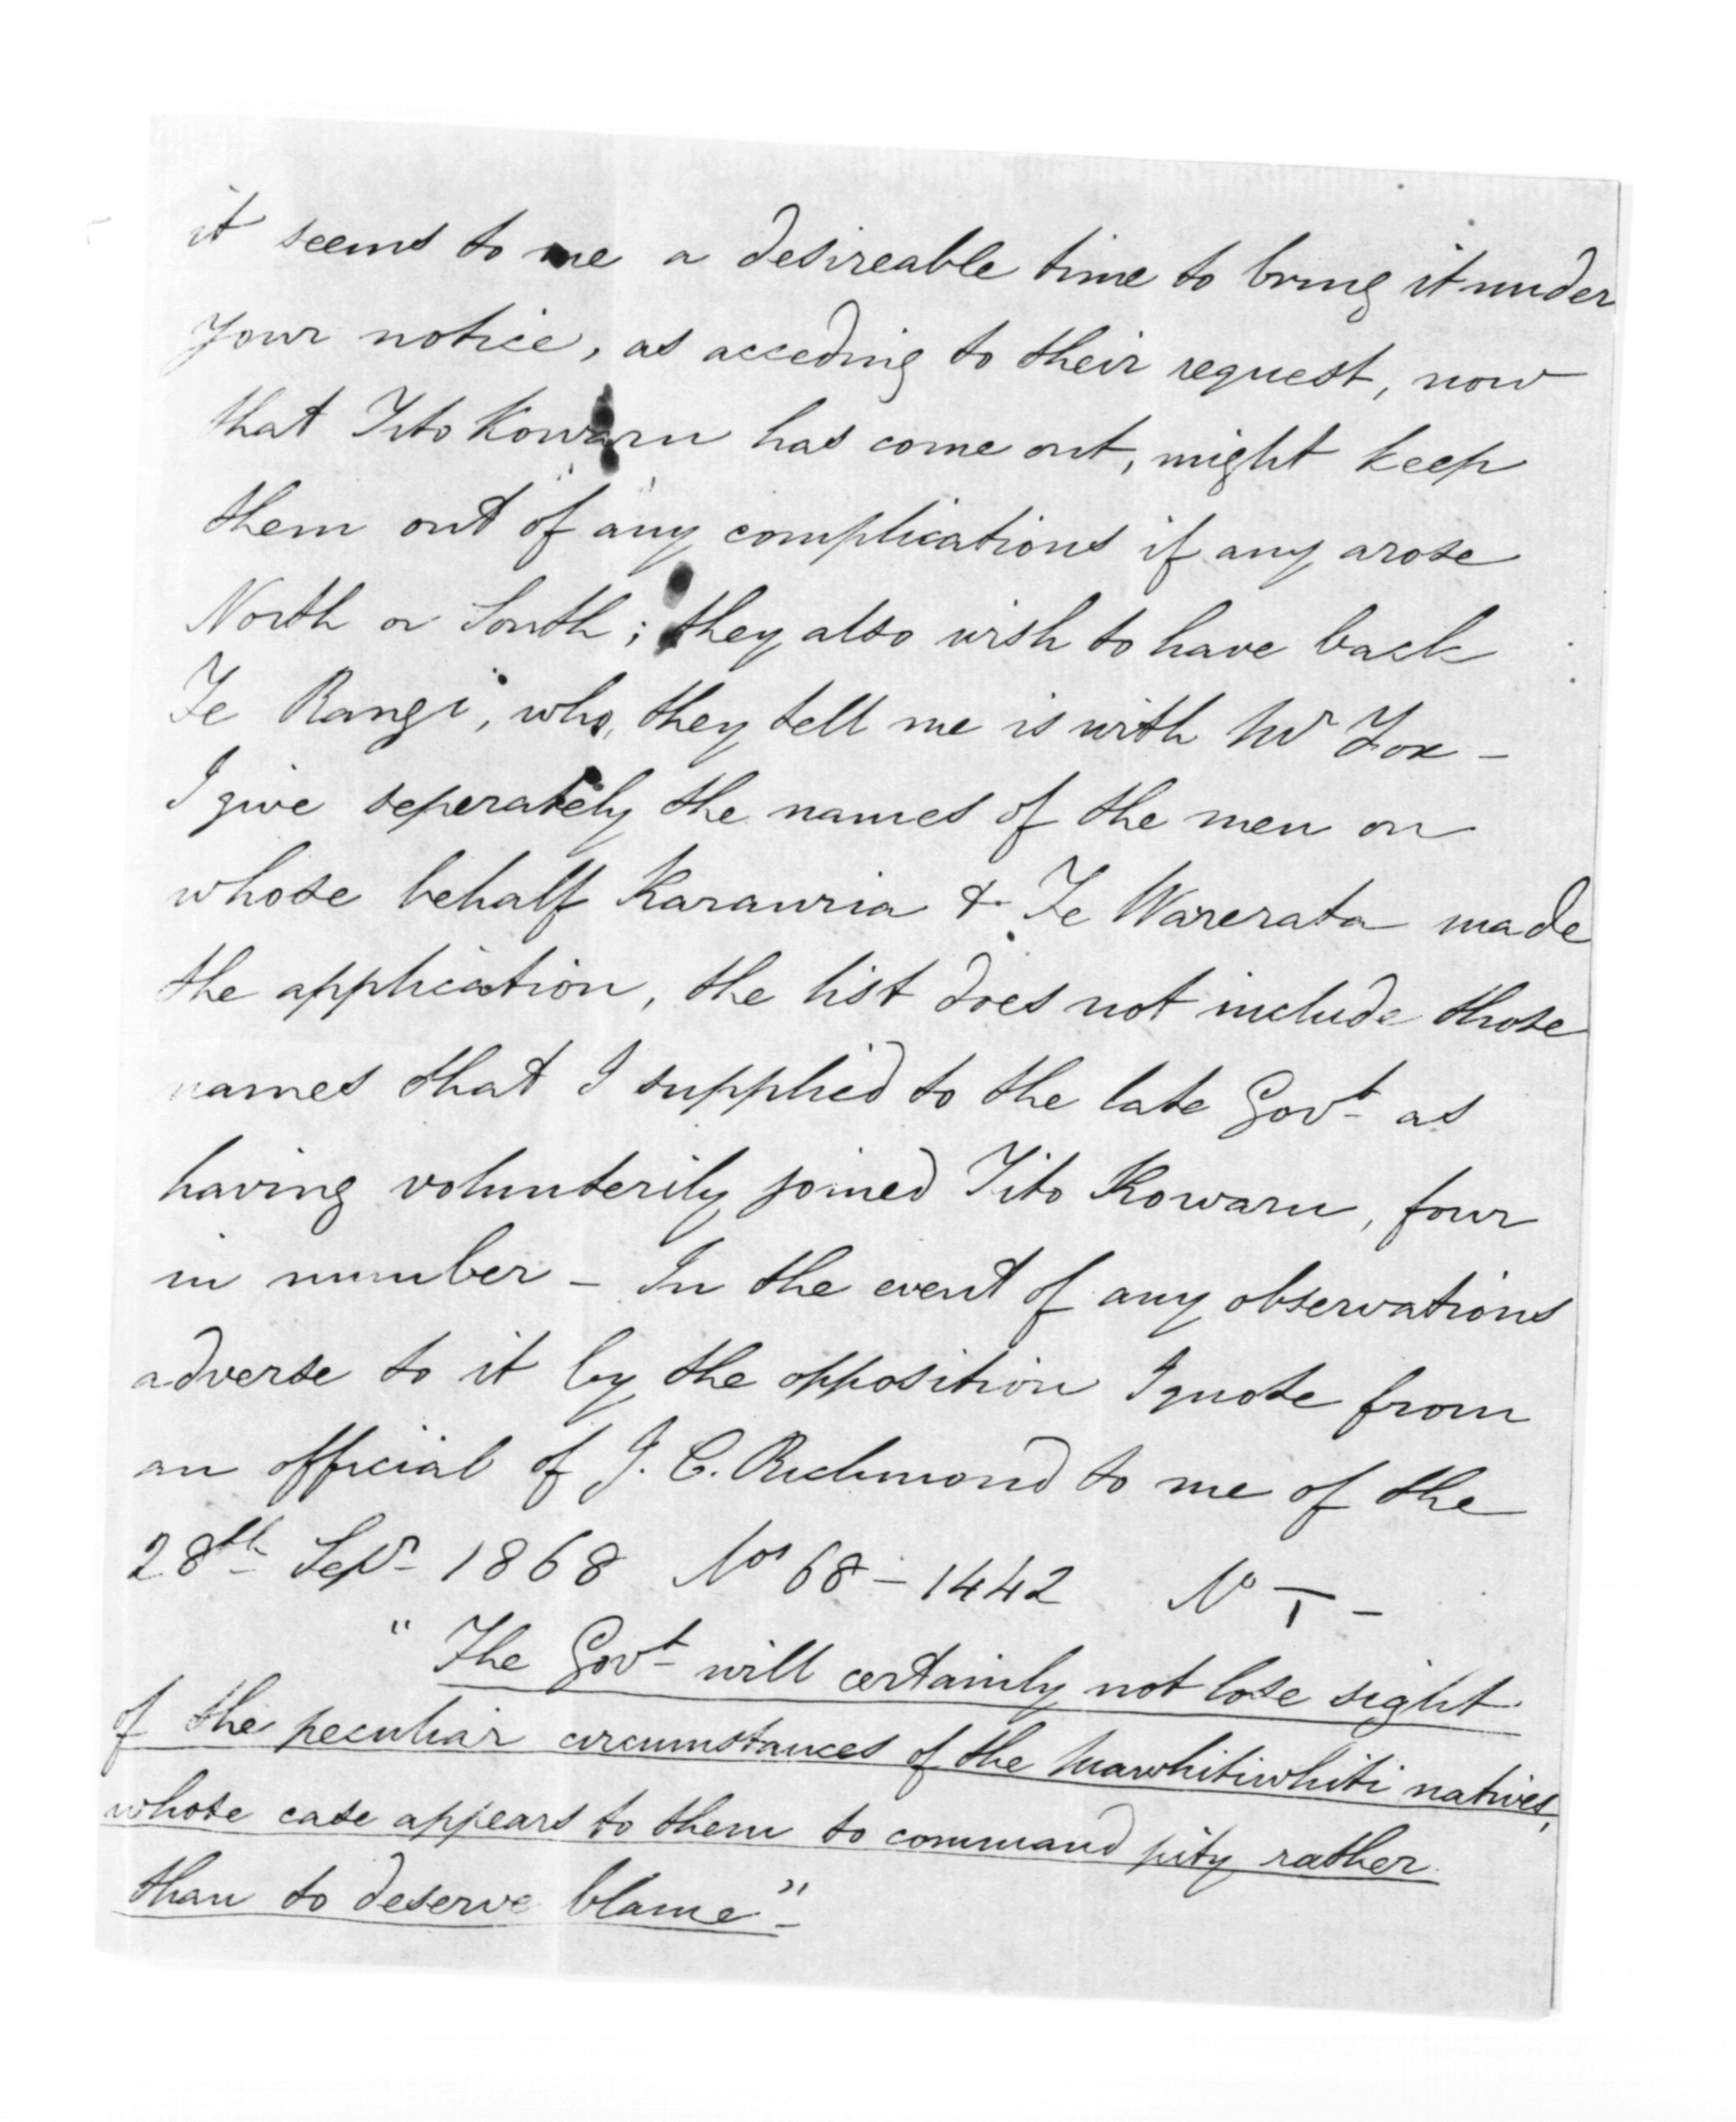 it seems to me a desireable time to bring it under
your notice, as acceding to their request, now
that Tito Kowaru has come out, might keep
them out of any complications if any arose
North or South; they also wish to have back
Te Rangi, who, they tell me is with Mr Fox -
I give seperately the names of the men on
whose behalf Karauria & Te Warerata made
the application, the list does not include those
names that I supplied to the late Govt as
having volunterily joined Tito Kowaru, four
in number - In the event of any observations
adverse to it by the opposition I quote from
an official of J. C. Richmond to me of the
28th Sepr 1868 No 68-1442 No
" The Govt will certainly not lose sight
of the peculiar circumstances of the Mawhitiwhiti natives,
whose case appears to them to command pity rather
than to deserve blame" -